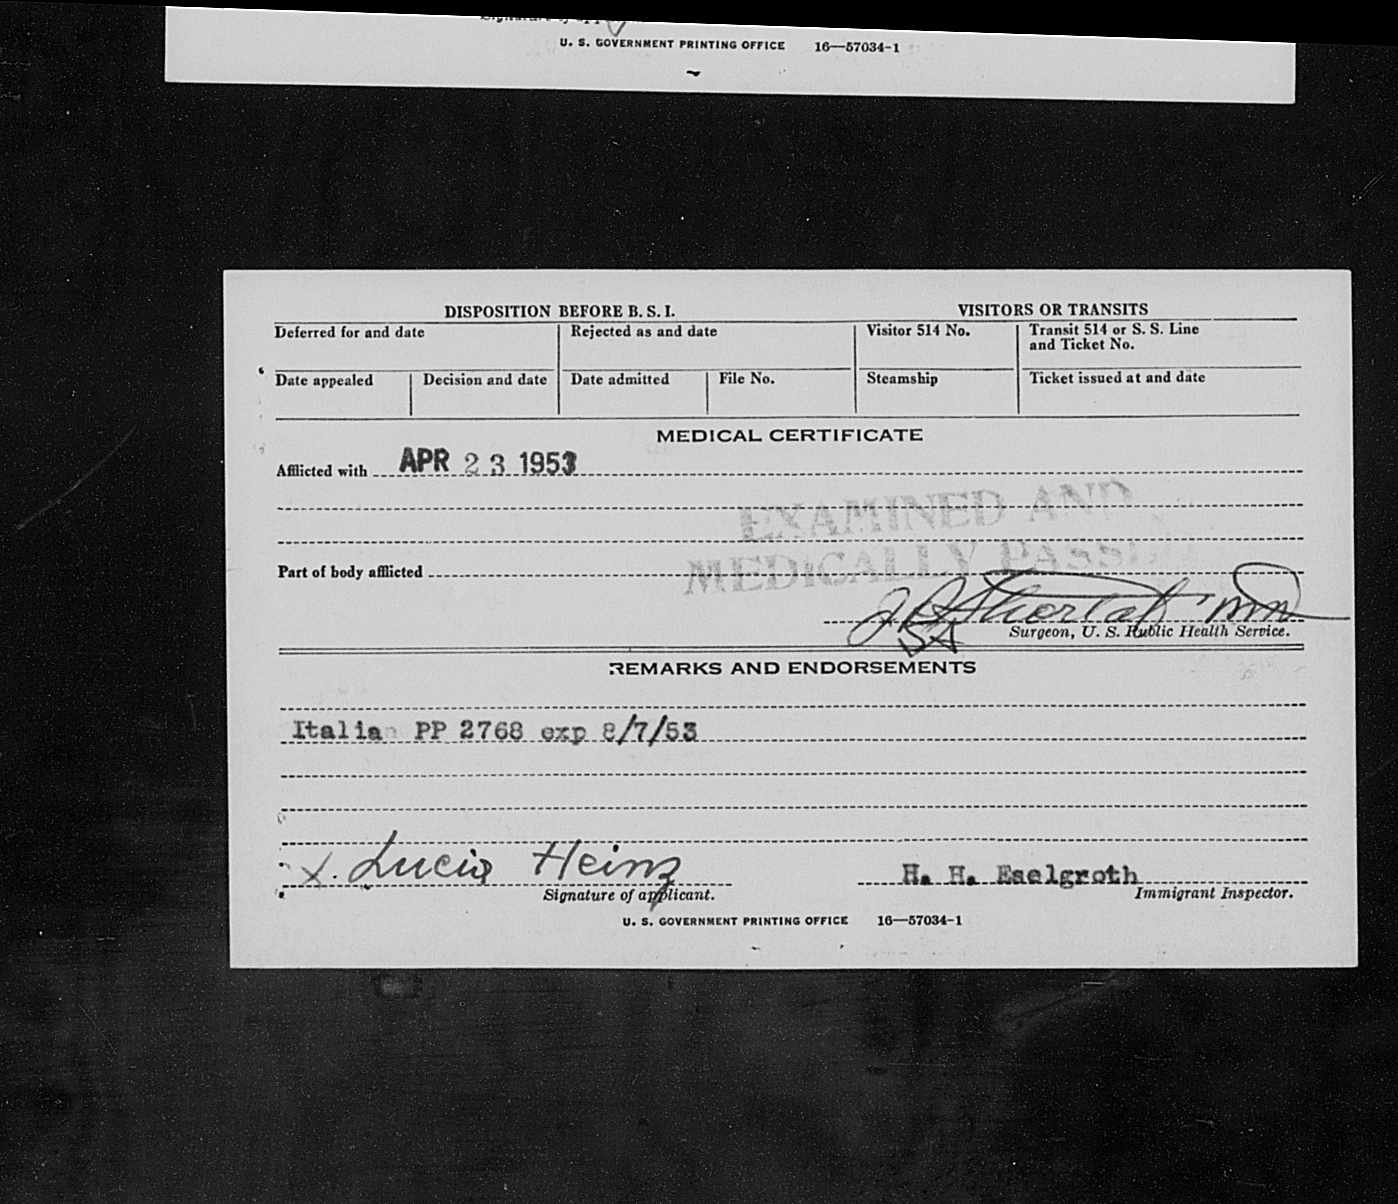 U. S. GOVERNMENT PRINTING OFFICE 16—57034-1
DISPOSITION BEFORE B. S. I.
VISITORS OR TRANSITS
Deferred for and date
Rejected as and date
Visitor 514 No.
Transit 514 or S. S. Line
and Ticket No.
Date appealed
Decision and date
Date admitted
File No.
Steamship
Ticket issued at and date
MEDICAL CERTIFICATE
Afflicted with APR 23 1953
EXAMINED AND
MEDICALLY PASSED
Part of body afflicted
Surgeon, U. S. Public Health Service.
REMARKS AND ENDORSEMENTS
Italian PP 2768 exp 8/7/53
X. Lucia Heinz
H. H. Eselgroth
Signature of applicant.
Immigrant Inspector.
U. S. GOVERNMENT PRINTING OFFICE 16—57034-1